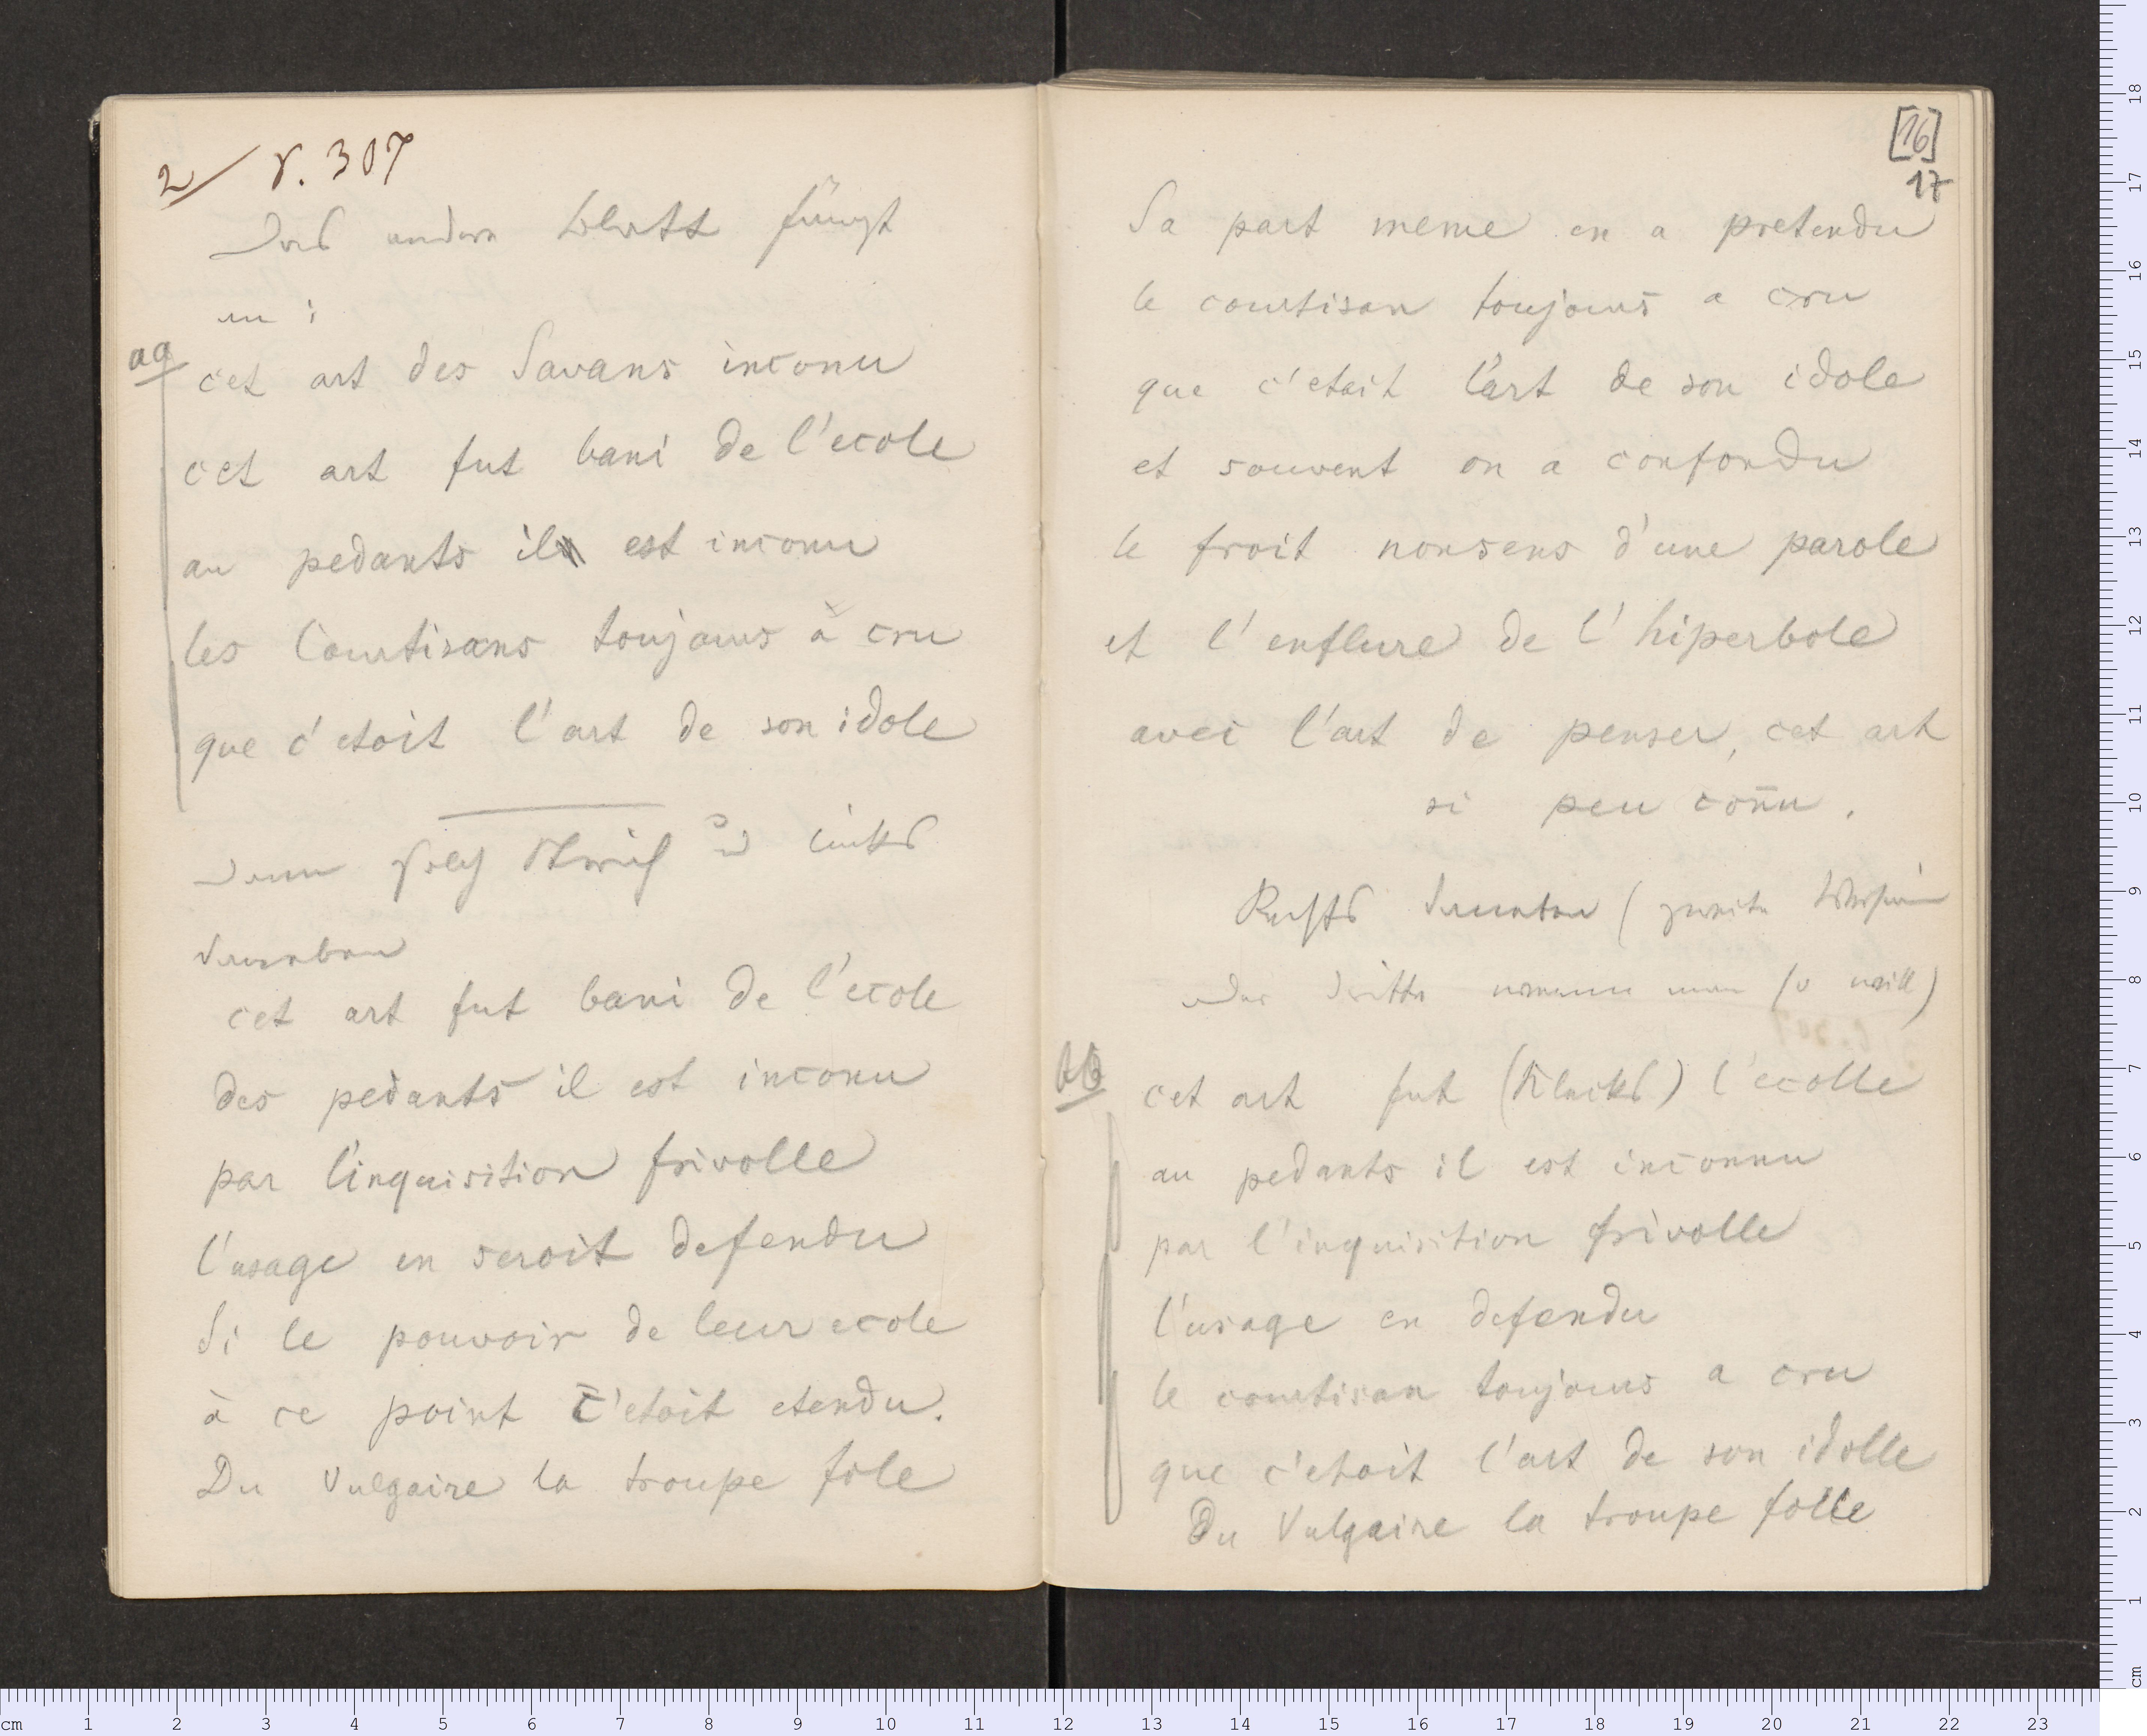 2/ V. 307
Das andere Blatt fängt
an:
aa
cet art des Savans inconu
cet art fut bani de l'ecole
au pedants il est inconu
les Courtisans toujours à cru
que c'etoit l'art de son idole
dann Strich links
darneben
cet art fut bani de l'ecole
des pedants il est inconu
par l'inquisition frivolle
l'usage en seroit defendu
Si le pouvoir de leur ecole
à ce point c'etoit etendu.
Du Vulgaire la troupe fole
[16]
17
Sa part meme en a pretendu
le courtisan toujours a cru
que c'etoit l'art de son idole
et souvent on a confondu
le froit nonsens d'une parole
et l'enflure de l'hiperbole
avec l'art de penser, cet art
si peu con̄u.
Rechts darneben (zweite Version
oder dritte wenn man so will)
bb
cet art fut (Klecks) l'ecolle
au pedants il est inconnu
par l'inquisition frivolle
l'usage en defendu
le courtisan toujours a cru
que c'etoit l'art de son idolle
Du Vulgaire la troupe folle